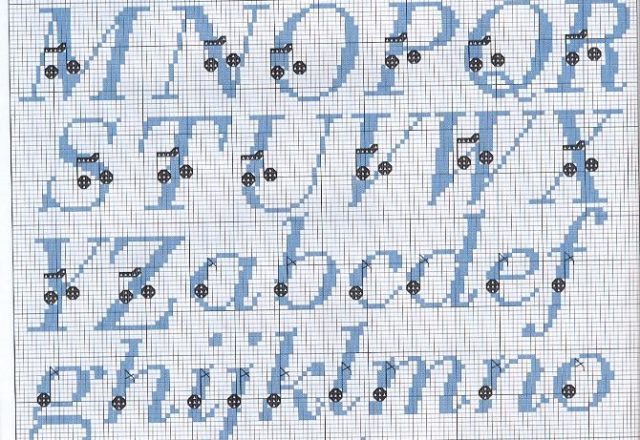 MNOPQR
STUVWX
YZabcdef
ghijklmno